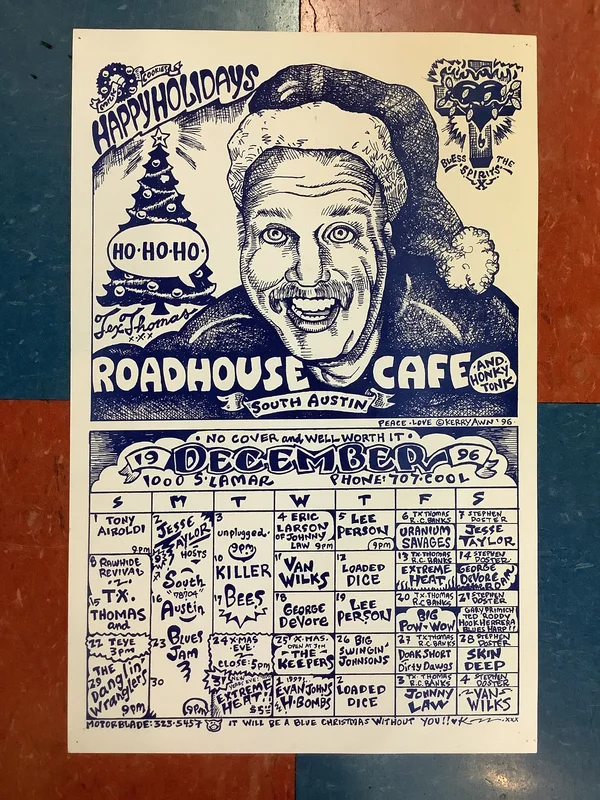 COOKIES
HAPPY HOLIDAYS
BLESS THE
SPIRITS
X
HO·HO·HO·
Tex Thomas
X·X·X
ROADHOUSE CAFE
AND
HONKY
TONK
SOUTH AUSTIN
PEACE·LOVE © KERRY AWN '96
·NO COVER and WELL WORTH IT·
19 DECEMBER 96
1000 S·LAMAR PHONE:707·COOL
S M T W T F S
1 TONY
AIROLDI
9pm
2 JESSE
TAYLOR
HOSTS
South
Austin
Blues
Jam
9pm
3
unplugged
9pm
4 ERIC
LARSON
OF JOHNNY
LAW 9pm
5 LEE
PERSON
9pm
6 TX THOMAS
R.C. BANKS
URANIUM
SAVAGES
7 STEPHEN
DOSTER
JESSE
TAYLOR
8 RAWHIDE
REVIVAL
15 TX.
THOMAS
and
22 7 EVE
3pm
THE
29 Danglin
Wranglers
9pm
9
16
23
30
10
KILLER
17
BEES
11
VAN
WILKS
12
LOADED
DICE
13 TX THOMAS
R.C. BANKS
EXTREME
HEAT
14 STEPHEN
DOSTER
GEORGE
DEVORE
18
GEORGE
DeVORE
19
LEE
PERSON
20 TX·THOMAS
R.C. BANKS
BIG
POW-WOW
21 STEPHEN
DOSTER
GARY PRIMICH
TED RODDY
HOOK HERRERA
BLUES HARP!!
24 X·MAS·
EVE
CLOSE:5pm
25 X·MAS·
OPEN AT 7PM
~THE
KEEPERS
26 BIG
SWINGIN'
JOHNSONS
27 TX THOMAS
R.C. BANKS
DOAK SHORT
Dirty Dawgs
28 STEPHEN
DOSTER
SKIN
DEEP
31
EXTREME
HEAT!!
$5
1 1997!
EVAN JOHNS
H·BOMBS
2
LOADED
DICE
3 TX·THOMAS
R.C. BANKS
JOHNNY
LAW
4 STEPHEN
DOSTER
~VAN~
WILKS
MOTORBLADE:323·5457 IT WILL BE A BLUE CHRISTMAS WITHOUT YOU!! XXX